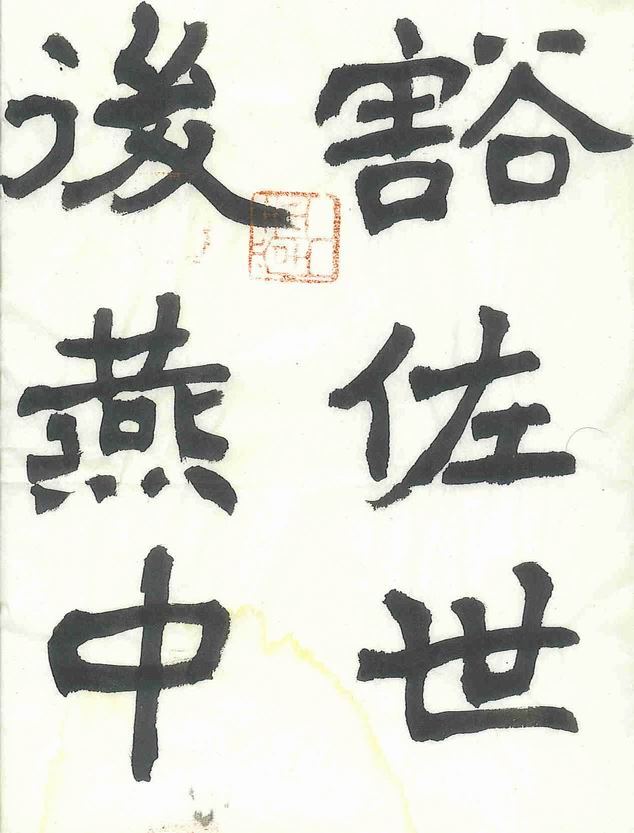 豁佐世
後燕中